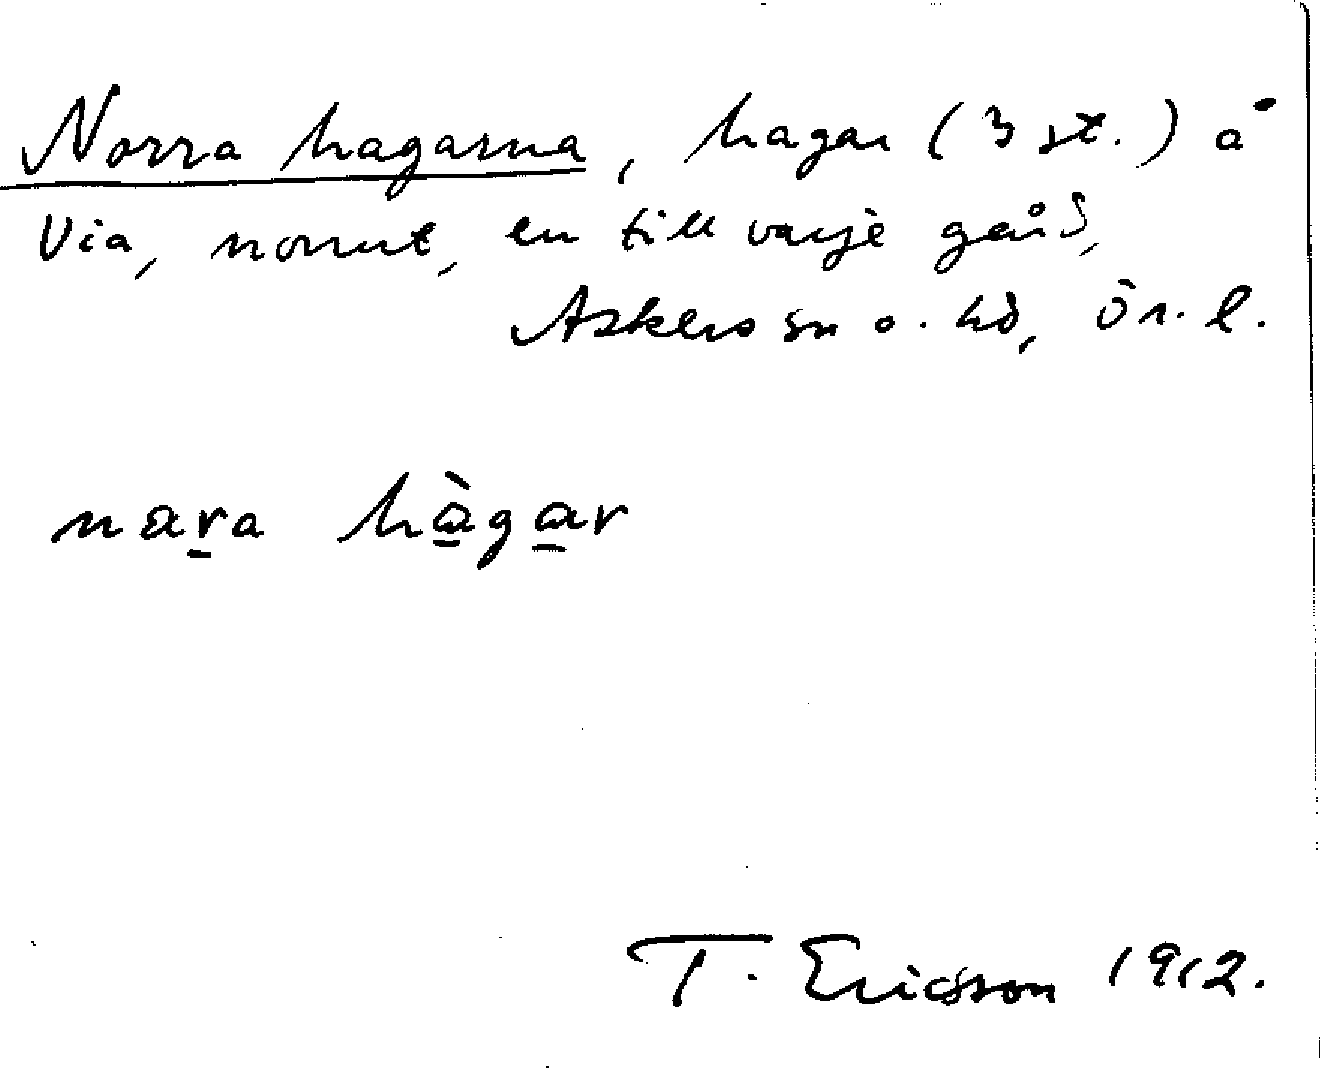 Norra hagarna, hagar (3 st.) å
Via, norrut, en till varje gård,
Askers sn o. hd, Ör. l.
nara hàgar
T. Ericson 1912.